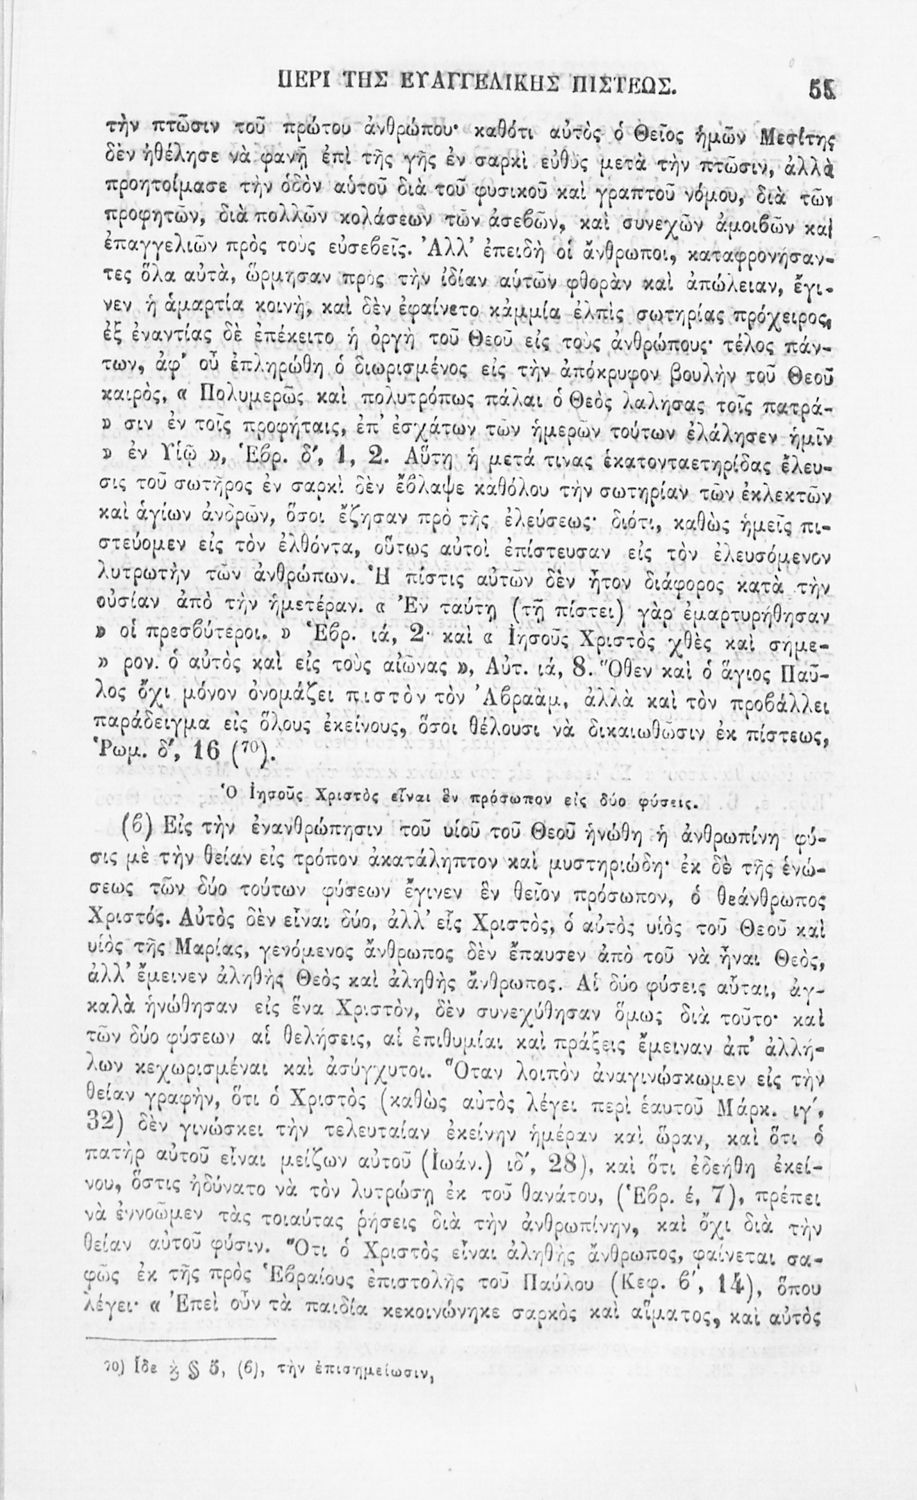 ΠΕΡΙ ΤΗΣ ΕΥΑΓΓΕΛΙΚΗΣ ΠΙΣΤΕΩΣ. 55
τὴν πτῶσιν τοῦ πρώτου ἀνθρώπου· καθότι αὐτὸς ὁ Θεῖος ἡμῶν Μεσίτης
δὲν ἠθέλησε νὰ φανῇ ἐπὶ τῆς γῆς ἐν σαρκὶ εὐθὺς μετὰ τὴν πτῶσιν, ἀλλὰ
προητοίμασε τὴν ὁδὸν αὑτοῦ διὰ τοῦ φυσικοῦ καὶ γραπτοῦ νόμου, διὰ τῶν
προφητῶν, διὰ πολλῶν κολάσεων τῶν ἀσεβῶν, καὶ συνεχῶν ἀμοιβῶν καὶ
ἐπαγγελιῶν πρὸς τοὺς εὐσεβεῖς. Ἀλλ' ἐπειδὴ οἱ ἄνθρωποι, καταφρονήσαν-
τες ὅλα αὐτὰ, ὥρμησαν πρὸς τὴν ἰδίαν αὑτῶν φθορὰν καὶ ἀπώλειαν, ἔγι-
νεν ἡ ἁμαρτία κοινὴ, καὶ δὲν ἐφαίνετο κᾀμμία ἐλπὶς σωτηρίας πρόχειρος,
ἐξ ἐναντίας δὲ ἐπέκειτο ἡ ὀργὴ τοῦ Θεοῦ εἰς τοὺς ἀνθρώπους· τέλος πάν-
των, ἀφ' οὗ ἐπληρώθη ὁ διωρισμένος εἰς τὴν ἀπόκρυφον βουλὴν τοῦ Θεοῦ
καιρὸς, « Πολυμερῶς καὶ πολυτρόπως πάλαι ὁ Θεὸς λαλήσας τοῖς πατρά-
» σιν ἐν τοῖς προφήταις, ἐπ' ἐσχάτων τῶν ἡμερῶν τούτων ἐλάλησεν ἡμῖν
» ἐν Υἱῷ », Ἑβρ. δ', 1, 2. Αὕτη ἡ μετά τινας ἑκατονταετηρίδας ἔλευ-
σις τοῦ σωτῆρος ἐν σαρκὶ δὲν ἔβλαψε καθόλου τὴν σωτηρίαν τῶν ἐκλεκτῶν
καὶ ἁγίων ἀνδρῶν, ὅσοι ἔζησαν πρὸ τῆς ἐλεύσεως· διότι, καθὼς ἡμεῖς πι-
στεύομεν εἰς τὸν ἐλθόντα, οὕτως αὐτοὶ ἐπίστευσαν εἰς τὸν ἐλευσόμενον
λυτρωτὴν τῶν ἀνθρώπων. Ἡ πίστις αὐτῶν δὲν ἦτον διάφορος κατὰ τὴν
οὐσίαν ἀπὸ τὴν ἡμετέραν. « Ἐν ταύτῃ (τῇ πίστει) γὰρ ἐμαρτυρήθησαν
» οἱ πρεσβύτεροι. » Ἑβρ. ιά, 2· καὶ « Ἰησοῦς Χριστὸς χθὲς καὶ σήμε-
» ρον. ὁ αὐτὸς καὶ εἰς τοὺς αἰῶνας », Αὐτ. ιά, 8. Ὅθεν καὶ ὁ ἅγιος Παῦ-
λος ὄχι μόνον ὀνομάζει πιστὸν τὸν Ἀβραὰμ, ἀλλὰ καὶ τὸν προβάλλει
παράδειγμα εἰς ὅλους ἐκείνους, ὅσοι θέλουσι νὰ δικαιωθῶσιν ἐκ πίστεως,
Ῥωμ. δ', 16 (70).
Ὁ Ἰησοῦς Χριστὸς εἶναι ἓν πρόσωπον εἰς δύο φύσεις.
(β) Εἰς τὴν ἐνανθρώπησιν τοῦ υἱοῦ τοῦ Θεοῦ ἡνώθη ἡ ἀνθρωπίνη φύ-
σις μὲ τὴν θείαν εἰς τρόπον ἀκατάληπτον καὶ μυστηριώδη· ἐκ δὲ τῆς ἑνώ-
σεως τῶν δύο τούτων φύσεων ἔγινεν ἓν θεῖον πρόσωπον, ὁ θεάνθρωπος
Χριστός. Αὐτὸς δὲν εἶναι δύο, ἀλλ' εἷς Χριστὸς, ὁ αὐτὸς υἱὸς τοῦ Θεοῦ καὶ
υἱὸς τῆς Μαρίας, γενόμενος ἄνθρωπος δὲν ἔπαυσεν ἀπὸ τοῦ νὰ ἦναι Θεὸς,
ἀλλ' ἔμεινεν ἀληθὴς Θεὸς καὶ ἀληθὴς ἄνθρωπος. Αἱ δύο φύσεις αὗται, ἀγ-
καλὰ ἡνώθησαν εἰς ἕνα Χριστὸν, δὲν συνεχύθησαν ὅμως διὰ τοῦτο· καὶ
τῶν δύο φύσεων αἱ θελήσεις, αἱ ἐπιθυμίαι καὶ πράξεις ἔμειναν ἀπ' ἀλλή-
λων κεχωρισμέναι καὶ ἀσύγχυτοι. Ὅταν λοιπὸν ἀναγινώσκωμεν εἰς τὴν
θείαν γραφὴν, ὅτι ὁ Χριστὸς (καθὼς αὐτὸς λέγει περὶ ἑαυτοῦ Μάρκ. ιγ',
32) δὲν γινώσκει τὴν τελευταίαν ἐκείνην ἡμέραν καὶ ὥραν, καὶ ὅτι ὁ
πατὴρ αὐτοῦ εἶναι μείζων αὐτοῦ (Ἰωάν.) ιδ', 28), καὶ ὅτι ἐδεήθη ἐκεί-
νου, ὅστις ἠδύνατο νὰ τὸν λυτρώσῃ ἐκ τοῦ θανάτου, (Ἑβρ. έ, 7), πρέπει
νὰ ἐννοῶμεν τὰς τοιαύτας ῥήσεις διὰ τὴν ἀνθρωπίνην, καὶ ὄχι διὰ τὴν
θείαν αὑτοῦ φύσιν. Ὅτι ὁ Χριστὸς εἶναι ἀληθὴς ἄνθρωπος, φαίνεται σα-
φῶς ἐκ τῆς πρὸς Ἑβραίους ἐπιστολῆς τοῦ Παύλου (Κεφ. β', 14), ὅπου
λέγει· « Ἐπεὶ οὖν τὰ παιδία κεκοινώνηκε σαρκὸς καὶ αἵματος, καὶ αὐτὸς
70) Ἴδε § 5, (β), τὴν ἐπισημείωσιν,